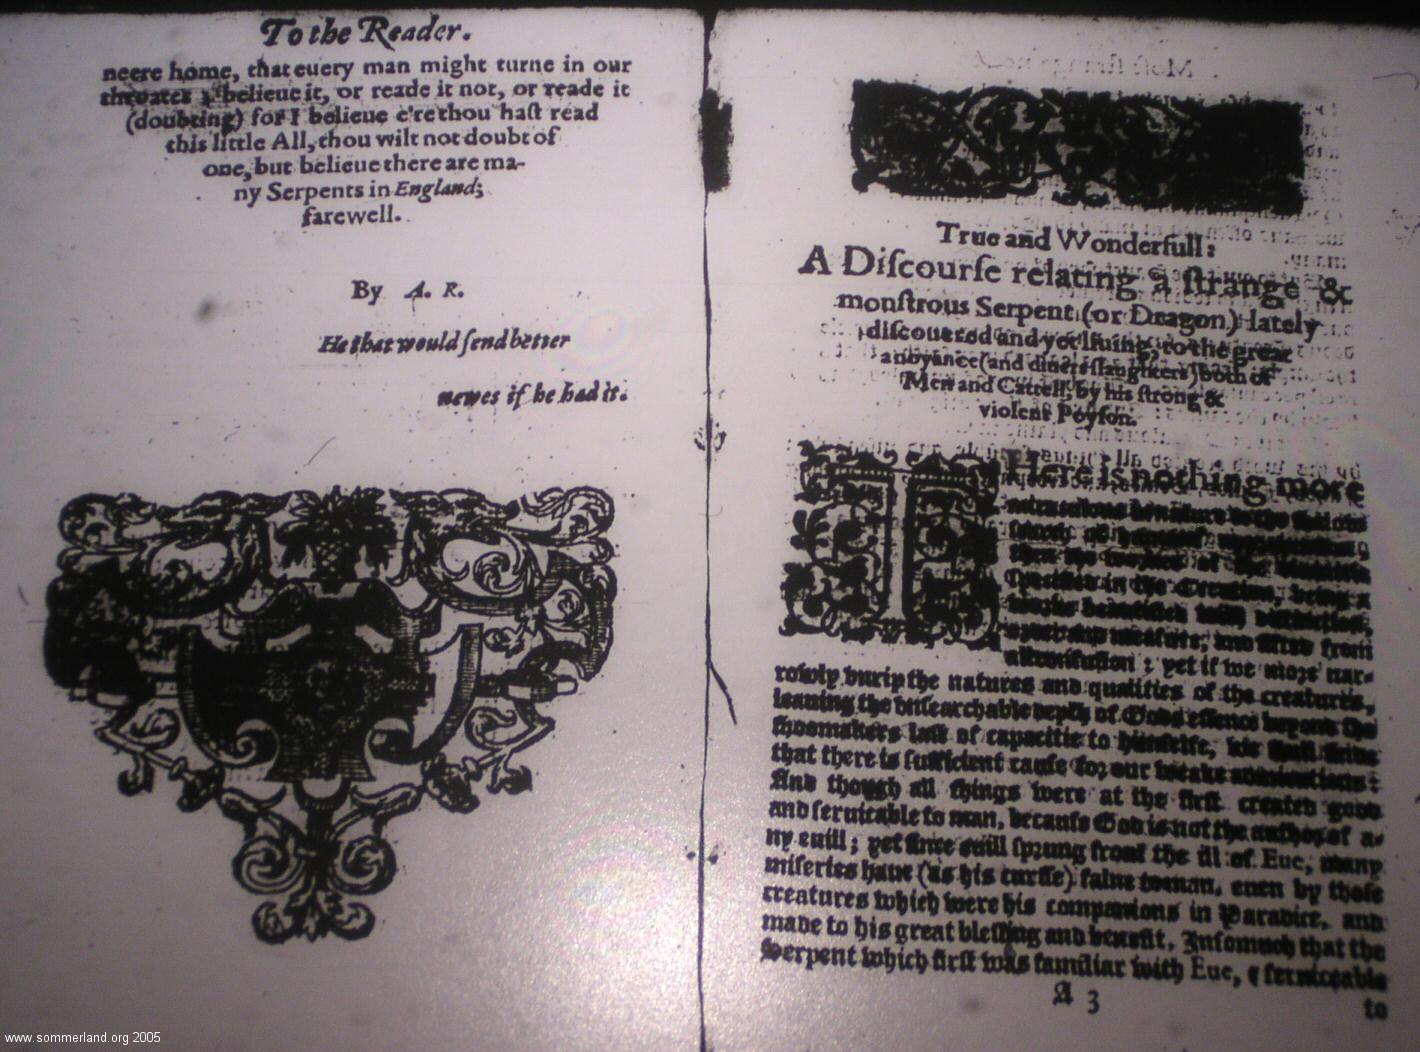 To the Reader.
neere home, that euery man might turne in our
threater; belieue it, or reade it not, or reade it
(doubting) for I belieue e're thou haſt read
this little All, thou wilt not doubt of
one, but belieue there are ma-
ny Serpents in England;
farewell.
By A. R.
He that would ſend better
newes if he had it.
True and Wonderfull:
A Diſcourſe relating a ſtrange &
monſtrous Serpent (or Dragon) lately
diſcouered and yet liuing, to the great
anoyance (and diuers ſlaughters) both of
Men and Cattell, by his ſtrong &
violent Poyſon.
THere is nothing more
in the Creation, being a
and from
confuſion; yet if we more nar-
rowly vnrip the natures and qualities of the creatures,
leauing the vnſearchable depth of Gods eſſence beyond the
ſhoomakers laſt of capacitie to himſelfe, we ſhall finde
that there is ſufficient cauſe for our weake admirations:
And though all things were at the firſt created good
and ſeruicable to man, becauſe God is not the author of a-
ny euill; yet ſince euill ſprung from the ill of Eue, many
miſeries haue (as his curſſe) falne to man, euen by thoſe
creatures which were his companions in Paradice, and
made to his great bleſſing and benefit, Inſomuch that the
Serpent which firſt was familiar with Eue, & ſerniceable
A 3
to
www.sommerland.org 2005